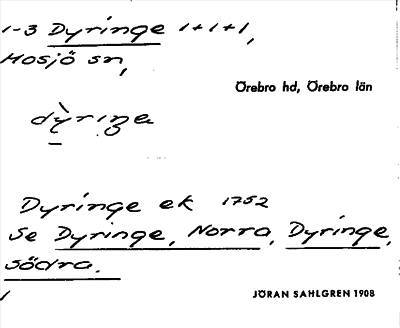 1-3 Dyringe 1+1+1,
Mosjö sn,
Örebro hd, Örebro län
Dyringe ek 1752
Se Dyringe, Norra, Dyringe,
Södra.
JÖRAN SAHLGREN 1908